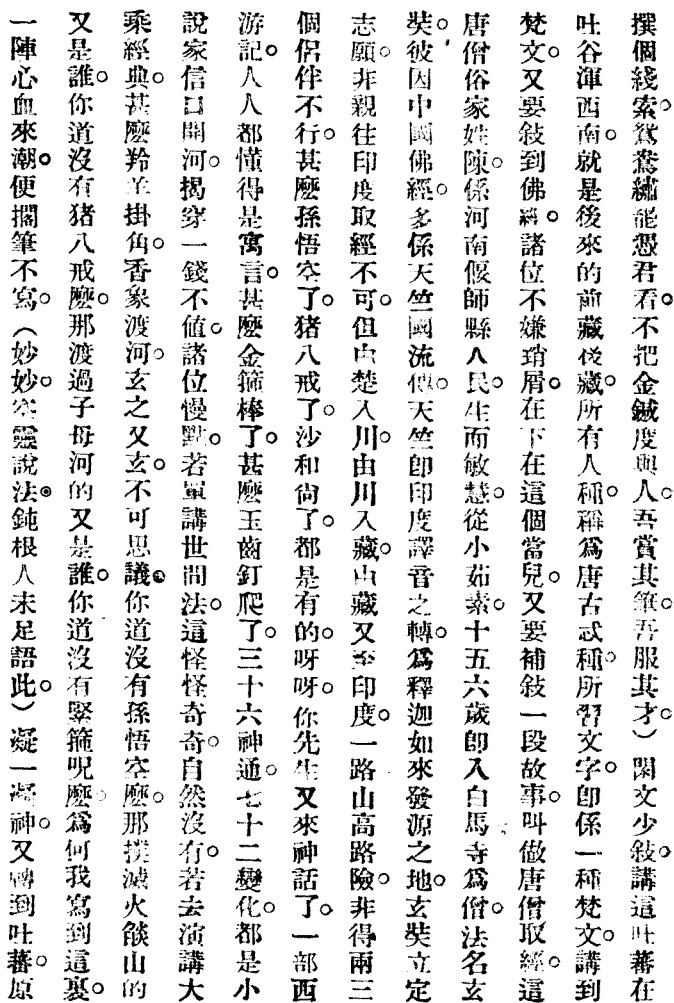 撰個綫索。鴛鴦繡能憑君看。不把金鍼度與人。吾賞其筆。吾服其才。）閑文少敍。講這吐蕃在
吐谷渾西南。就是後來的前藏後藏。所有人種。稱爲唐古忒種。所習文字。卽係一種梵文。講到
梵文。又要敍到佛經。諸位不嫌瑣屑。在下在這個當兒。又要補敍一段故事。叫做唐僧取經。這
唐僧俗家姓陳。係河南偃師縣人民。生而敏慧。從小茹素。十五六歲卽入白馬寺爲僧。法名玄
奘。彼因中國佛經。多係天竺國流傳。天竺卽印度譯音之轉。爲釋迦如來發源之地。玄奘立定
志願。非親往印度取經不可。但由楚入川。由川入藏。由藏又至印度。一路山高路險。非得兩三
個侶伴不行。甚麽孫悟空了。猪八戒了。沙和尙了。都是有的。呀呀。你先生又來神話了。一部西
游記。人人都懂得是寓言。甚麽金箍棒了。甚麽玉齒釘爬了。三十六神通。七十二變化。都是小
說家信口開河。揭穿一錢不値。諸位慢點。若單講世間法。這怪怪奇奇。自然沒有。若去演講大
乘經典。甚麽羚羊掛角。香象渡河。玄之又玄。不可思議。你道沒有孫悟空麽。那撲滅火燄山的
又是誰。你道沒有猪八戒麽。那渡過子母河的又是誰。你道沒有緊箍呪麽。爲何我寫到這裏。
一陣心血來潮。便擱筆不寫。（妙妙。空靈說法。鈍根人未足語此。）凝一凝神。又轉到吐蕃。原